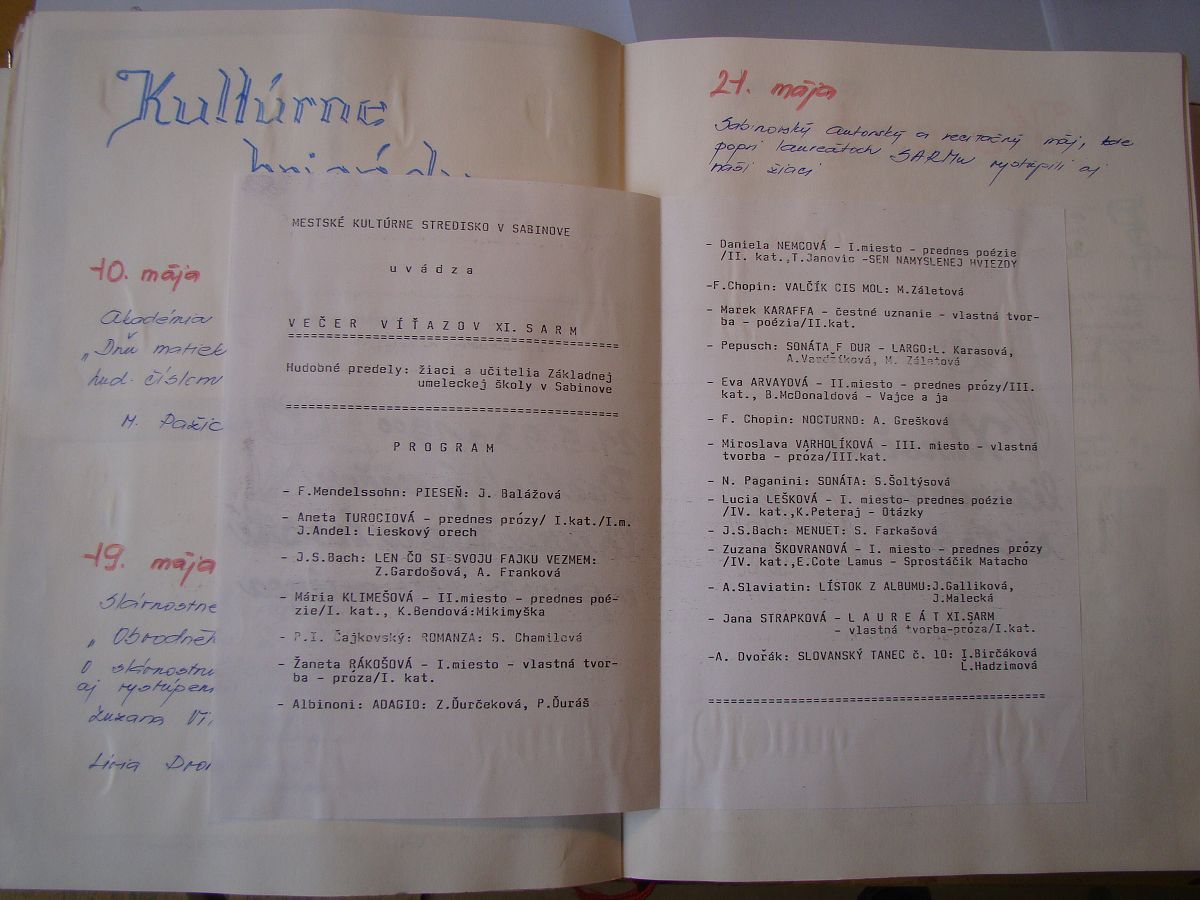 Kultúrne
10. mája
Akadémia
„Dňu matiek
hud. číslom
M. Pažic
19. mája
Slávnostne
„Obrodné
O slávnostn
aj vystúpem
Zuzana
Lívia
MESTSKÉ KULTÚRNE STREDISKO V SABINOVE
u v á d z a
V E Č E R   V Í Ť A Z O V  XI. S A R M
==========================================
Hudobné predely: žiaci a učitelia Základnej
umeleckej školy v Sabinove
==========================================
P R O G R A M
- F.Mendelssohn: PIESEŇ: J. Balážová
- Aneta TUROCIOVÁ - prednes prózy/ I.kat./I.m.
J.Andel: Lieskový orech
- J.S.Bach: LEN ČO SI SVOJU FAJKU VEZMEM:
Z.Gardošová, A. Franková
- Mária KLIMEŠOVÁ - II.miesto - prednes poé-
zie/I. kat., K.Bendová:Mikimyška
- P.I. Čajkovský: ROMANZA: S. Chamilová
- Žaneta RÁKOŠOVÁ - I.miesto - vlastná tvor-
ba - próza/I. kat.
- Albinoni: ADAGIO: Z.Ďurčeková, P.Ďuráš
21. mája
Sabinovský autorský a recitačný máj, kde
popri laureátoch SARMu vystúpili aj
naši žiaci
- Daniela NEMCOVÁ - I.miesto - prednes poézie
/II. kat.,T.Janovic -SEN NAMYSLENEJ HVIEZDY
-F.Chopin: VALČÍK CIS MOL: M.Záletová
- Marek KARAFFA - čestné uznanie - vlastná tvor-
ba - poézia/II.kat.
- Pepusch: SONÁTA F DUR - LARGO:L. Karasová,
A.Vardžíková, M. Záletová
- Eva ARVAYOVÁ - II.miesto - prednes prózy/III.
kat., B.McDonaldová - Vajce a ja
- F. Chopin: NOCTURNO: A. Grešková
- Miroslava VARHOLÍKOVÁ - III. miesto - vlastná
tvorba - próza/III.kat.
- N. Paganini: SONÁTA: S.Šoltýsová
- Lucia LEŠKOVÁ - I. miesto- prednes poézie
/IV. kat.,K.Peteraj - Otázky
- J.S.Bach: MENUET: S. Farkašová
- Zuzana ŠKOVRANOVÁ - I. miesto - prednes prózy
/IV. kat.,E.Cote Lamus - Sprostáčik Matacho
- A.Slaviatin: LÍSTOK Z ALBUMU:J.Galliková,
J.Malecká
- Jana STRAPKOVÁ - L A U R E Á T XI.SARM
- vlastná tvorba-próza/I.kat.
-A. Dvořák: SLOVANSKÝ TANEC č. 10: I.Birčáková
Ľ.Hadzimová
==========================================